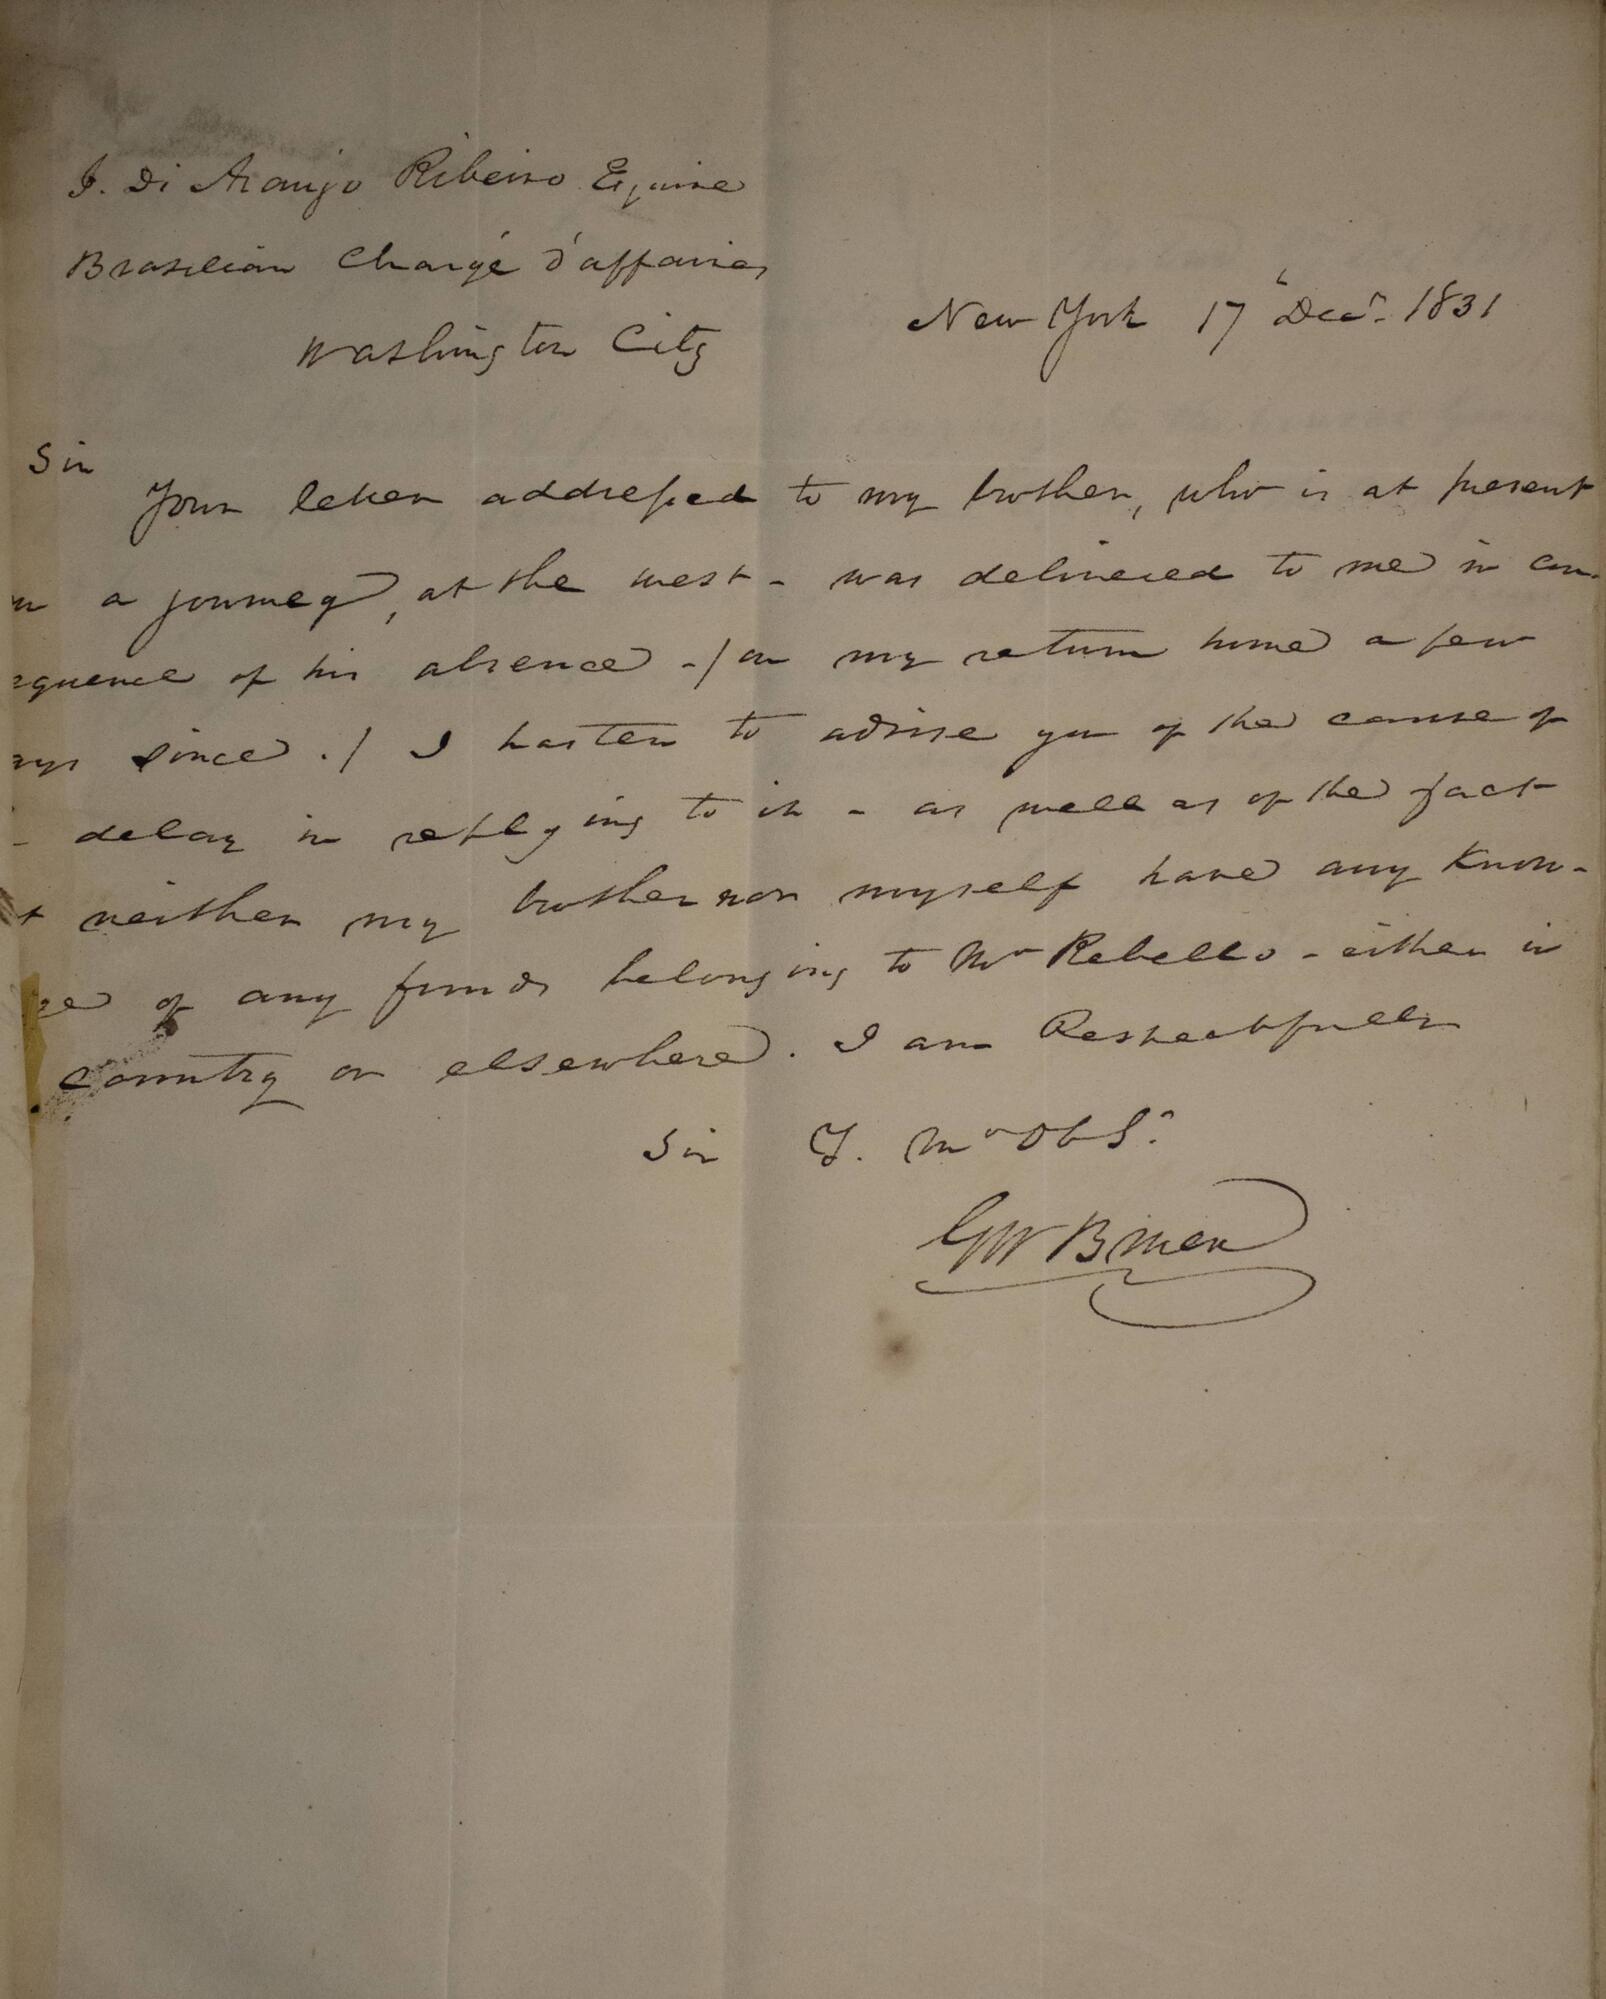 J. Di Araujo Ribeiro Esquire
Brasilian Chargé d'affaires
Washington City
New York 17 Decr. 1831
Sir
Your letter addressed to my brother, who is at present
a journey, at the west - was delivered to me in con-
sequence of his absence - / on my return home a few
ays since. / I hasten to advise you of the cause of
- delay in replying to it - as well as of the fact
t neither my brother nor myself have any Know-
ge of any funds belonging to Mr Rebello - either in
country or elsewhere. I am Respectfully
Sir Y. Mo Ob S.
GW